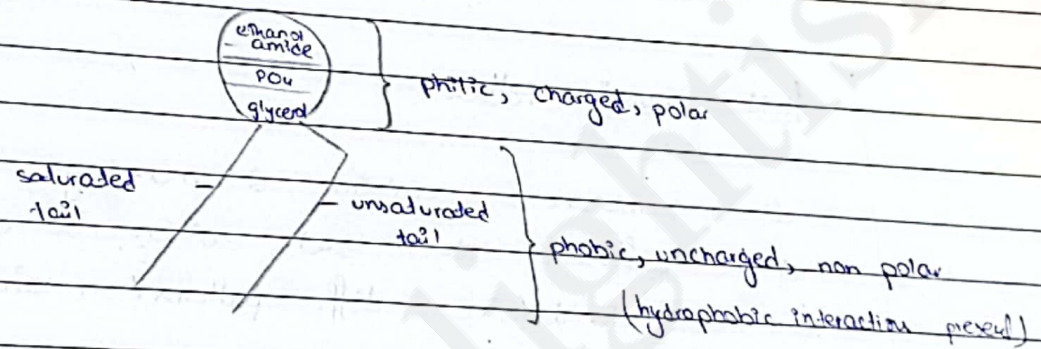 ethanol
amide
PO4
glycerol
philic, charged, polar
saturated
tail
unsaturated
tail
phobic, uncharged, non polar
(hydrophobic interactions present)